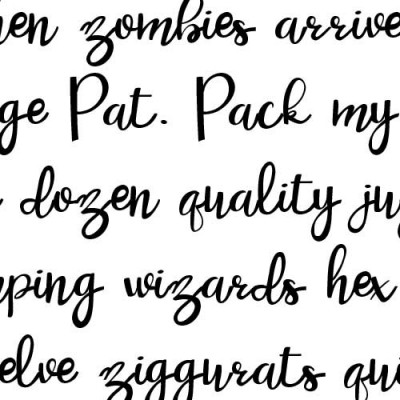 hen zombies arrive
ge Pat. Pack my
dozen quality ju
ping wizards hex
elve ziggurats qui